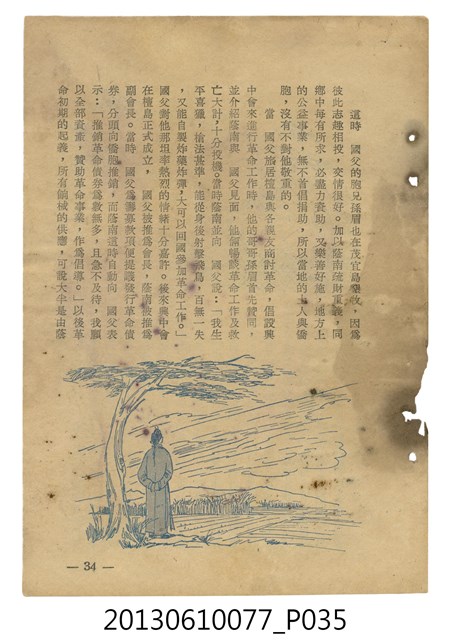 這時　國父的胞兄孫眉也在茂宜島墾牧，因為
彼此志趣相投，交情很好。加以蔭南疏財重義，同
鄉中每有所求，必盡力資助，又樂善好施，地方上
的公益事業，無不首倡捐助，所以當地的土人與僑
胞，沒有不對他敬重的。
當　國父旅居檀島與各親友商討革命，倡設興
中會來進行革命工作時，他的哥哥孫眉首先贊同，
並介紹蔭南與　國父見面，他倆暢談革命工作及救
亡大計，十分投機。當時蔭南並向　國父說：「我生
平喜獵，槍法甚準，能從身後射擊飛鳥，百無一失
，又能自製炸藥炸彈，大可以回國參加革命工作。」
國父對他那坦率熱烈的情緒十分嘉許。後來興中會
在檀島正式成立，　國父被推為會長，蔭南被推為
副會長。當時，　國父為籌募款項便提議發行革命債
券，分頭向僑胞推銷，而蔭南這時自動向　國父表
示：「推銷革命債券為數無多，且急不及待，我願
以全部資產，贊助革命事業，作為倡導。」以後革
命初期的起義，所有餉械的供應，可說大半是由蔭
— 34 —
20130610077_P035